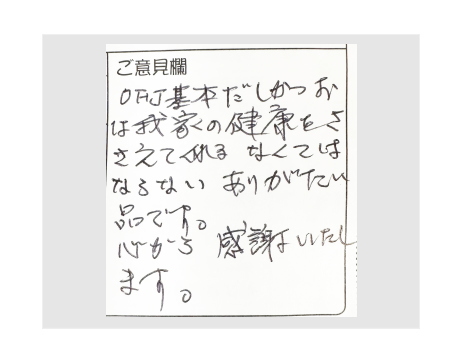 ご意見欄
OHJ基本だしかつお
は我家の健康をさ
さえてくれる なくては
ならない ありがたい
品です。
心から 感謝いたし
ます。